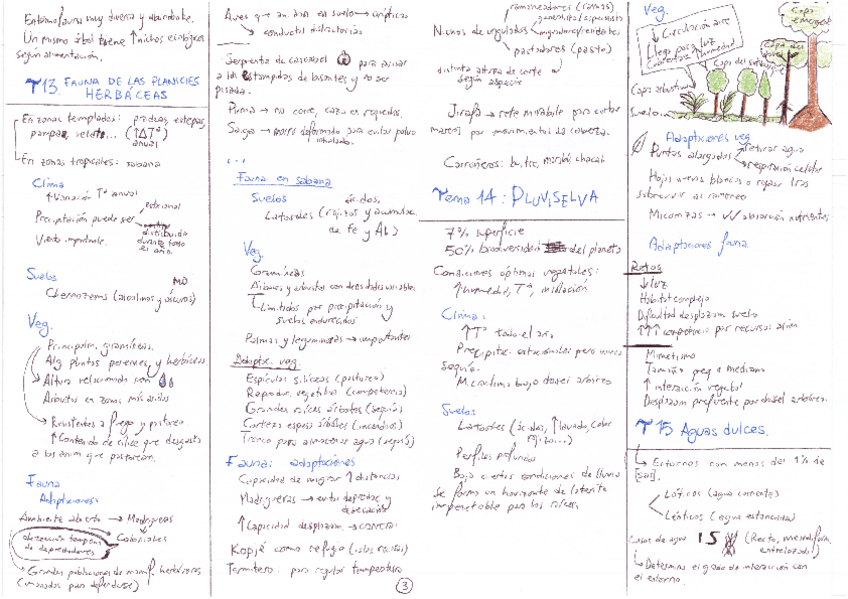 Entorno/fauna muy diversa y abundante.
Un mismo árbol tiene ↑ nichos ecológicos
según alimentación.
T13. FAUNA DE LAS PLANICIES
HERBÁCEAS
En zonas templadas: praderas, estepas,
pampas, (↑ΔTª)
anual
En zonas tropicales: sabana
Clima
↑ Variación Tª anual
Precipitación puede ser estacional
distribuida
durante todo
el año.
Viento importante.
Suelos
MO
Chernozems (alcalinos y oscuros)
Veg.
Principalm. gramíneas.
Alg plantas perennes, y herbáceas
Altura relacionada con
Arbustos en zonas más áridas
Resistentes a fuego y pastoreo.
↑ Contenido de sílice que desgasta
a los anim que pastorean.
Fauna
Adaptaciones
Ambiente abierto → Madrigueras
Coloniales
detección temprana
de depredadores
Grandes poblaciones de mamíf. herbívoros
(manadas para defenderse)
Aves que anidan en suelo → crípticas
conductas distractorias
Serpiente de cascabel para avisar
a las estampidas de bisontes y no ser
pisada.
Puma → no corre, caza en roquedos.
Saiga → morro deformado para evitar polvo
...
Fauna en sabana
Suelos
ácidos,
Lateríticos (rojizos y acumulac.
de Fe y Al)
Veg.
Gramíneas
Árboles y arbustos con densidades variables
Limitados por precipitación y
suelos endurecidos
Palmas y leguminosas → importantes
Adaptac. veg.
Espículas silíceas (pastoreo)
Reproduc. vegetativa (competencia)
Grandes raíces árboles (sequía)
Cortezas espesas árboles (incendios)
Tronco para almacenar agua (sequía)
Fauna: adaptaciones
Capacidad de migrar ↑ distancias
Madrigueras → evitar depredac. y
desecación
↑ Capacidad desplazam. → carrera
Kopje como refugio (islas rocosas)
Termitero: para regular temperatura
3
ramoneadores (ramas)
generalista/especialista
Nichos de ungulados migradores/residentes
pastadores (pasto)
distinta altura de corte
según especie
Jirafa → rete mirabile para evitar
mareos por movimientos de cabeza.
Carroñeros: buitre, marabú, chacal
Tema 14: PLUVISELVA
7% superficie
50% biodiversidad del planeta
Condiciones óptimas vegetales:
↑ humedad, Tª, insolación
Clima:
↑Tª todo el año.
Precipitac. estacionales pero nunca
sequía.
Microclima bajo dosel arbóreo
Suelos
Lateríticos (ácidos, ↑ lavado, color
rojizo...)
Perfiles profundos
Bajo ciertas condiciones de lluvia
se forma un horizonte de laterita
impenetrable para las raíces.
Veg.
↓ Circulación aire
Llega poca luz
Constante humedad
Capa emergente
Capa del dosel
Capa del sotobosque
Capa arbustiva
Suelo
Adaptaciones veg
Puntas alargadas retirar agua
respiración celular
Hojas nuevas blancas o rojas para
sobrevivir al ramoneo
Micorrizas → absorción nutrientes
Adaptaciones fauna
Retos
↓ luz
Hábitat complejo
Dificultad desplazam suelo
↑↑↑ competencia por recursos anim
Mimetismo
Tamaño peq a mediano
↑ interacción vegetal
Desplazam preferente por dosel arbóreo.
T15 Aguas dulces.
Entornos con menos del 1% de
[sal].
Lóticos (agua corriente)
Lénticos (agua estancada)
Cursos de agua (Recto, meandriform,
entrelazado)
Determina el grado de interacción con
el entorno.